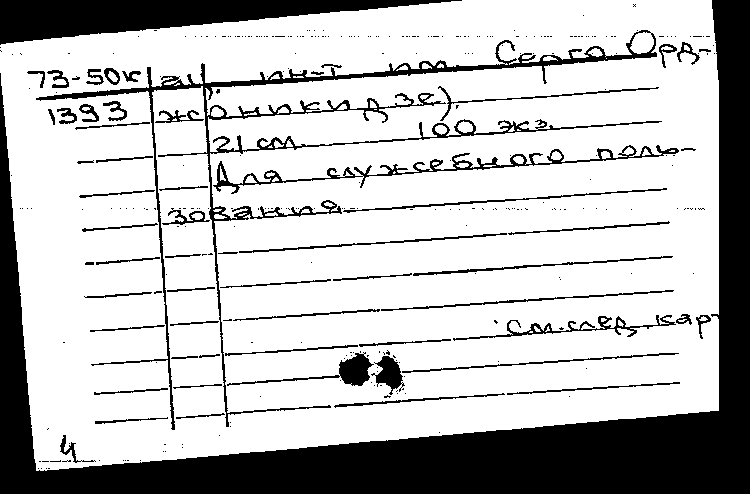 73-50к ац. ин-т им. Серго Орд-
1393 жоникидзе).
21 см. 100 экз.
Для служебного поль-
зования.
См. след. кар
4